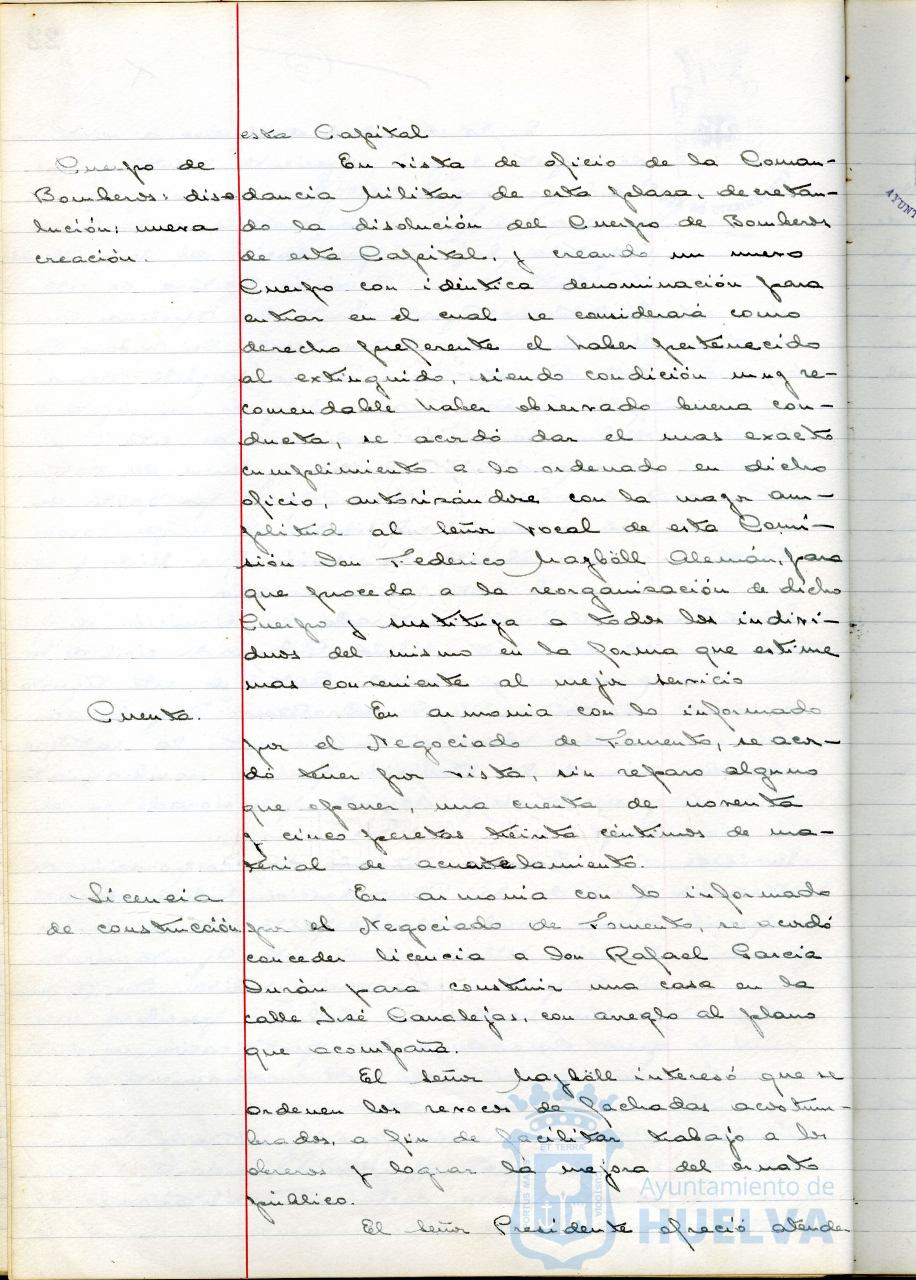 esta Capital
Cuerpo de
Bomberos: diso
lución; nueva
creación.
En vista de oficio de la Coman-
dancia Militar de esta plaza, decretan-
do la disolución del Cuerpo de Bomberos
de esta Capital, y creando un nuevo
Cuerpo con idéntica denominación para
entrar en el cual se considerará como
derecho preferente el haber pertenecido
al extinguido, siendo condición muy re-
comendable haber observado buena con-
ducta, se acordó dar el mas exacto
cumplimiento a lo ordenado en dicho
oficio, autorizándose con la mayor am-
plitud al Señor Vocal de esta Comi-
sión Don Federico Mayböll Alemán, para
que proceda a la reorganización de dicho
Cuerpo y sustituya a todos los indivi-
duos del mismo en la forma que estime
mas conveniente al mejor servicio
Cuenta.
En armonia con lo informado
por el Negociado de Fomento, se acor-
dó tener por vista, sin reparo alguno
que oponer, una cuenta de noventa
y cinco pesetas treinta céntimos de ma-
terial de acuartelamiento.
Licencia
de construcción
En armonia con lo informado
por el Negociado de Fomento, se acordó
conceder licencia a Don Rafael Garcia
Durán para construir una casa en la
calle José Canalejas, con arreglo al plano
que acompaña.
El Señor Mayböll interesó que se
ordenen los revocos de fachadas acostum-
brados, a fin de facilitar trabajo a los
obreros y lograr la mejora del ornato
público.
El Señor Presidente ofreció atender
Ayuntamiento de
HUELVA
PORTUS MARIS
ET TERRÆ
CUSTODIA
AYUNT